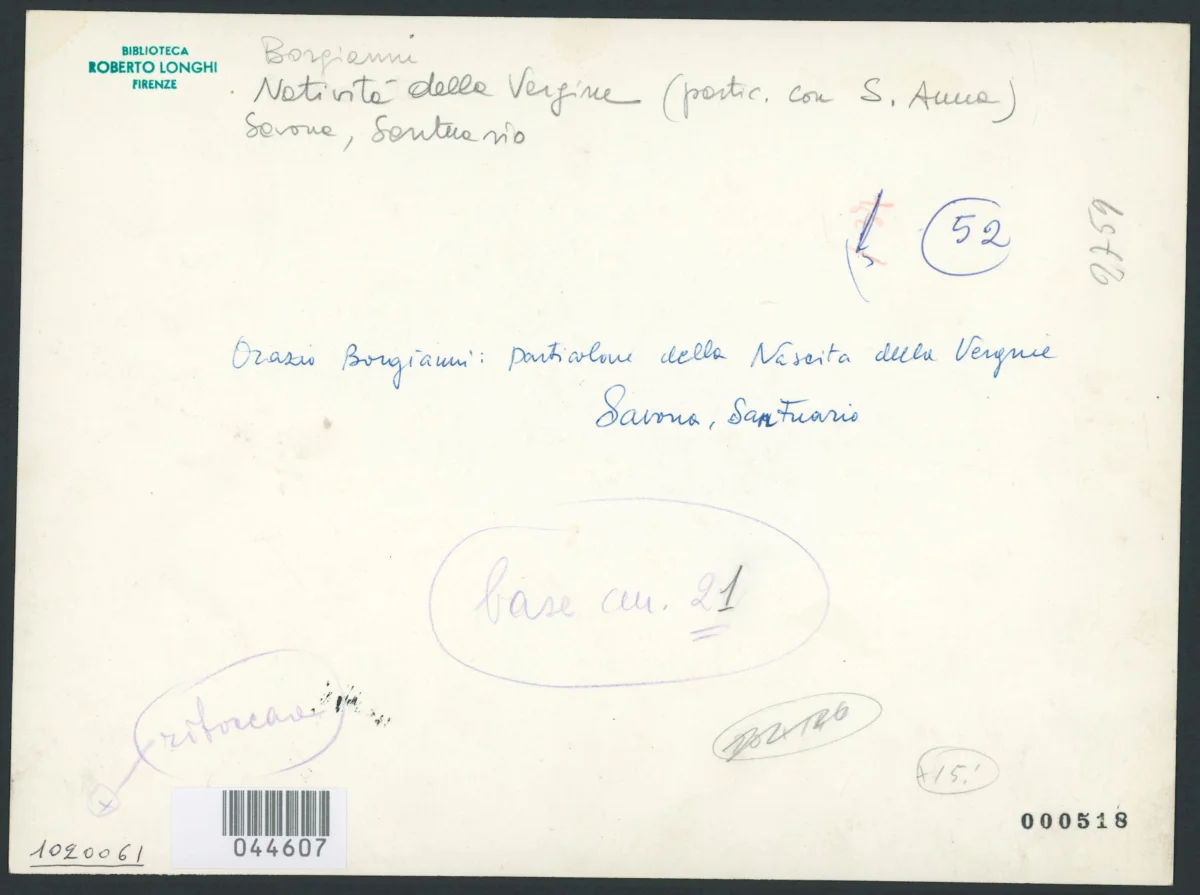 BIBLIOTECA
ROBERTO LONGHI
FIRENZE
Borgianni
Natività della Vergine (partic. con S. Anna)
Savona, Santuario
52
6976
Orazio Borgianni: particolare della Nascita della Vergine
Savona, Santuario
base cm. 21
ritoccare
+15!
000518
044607
1020061